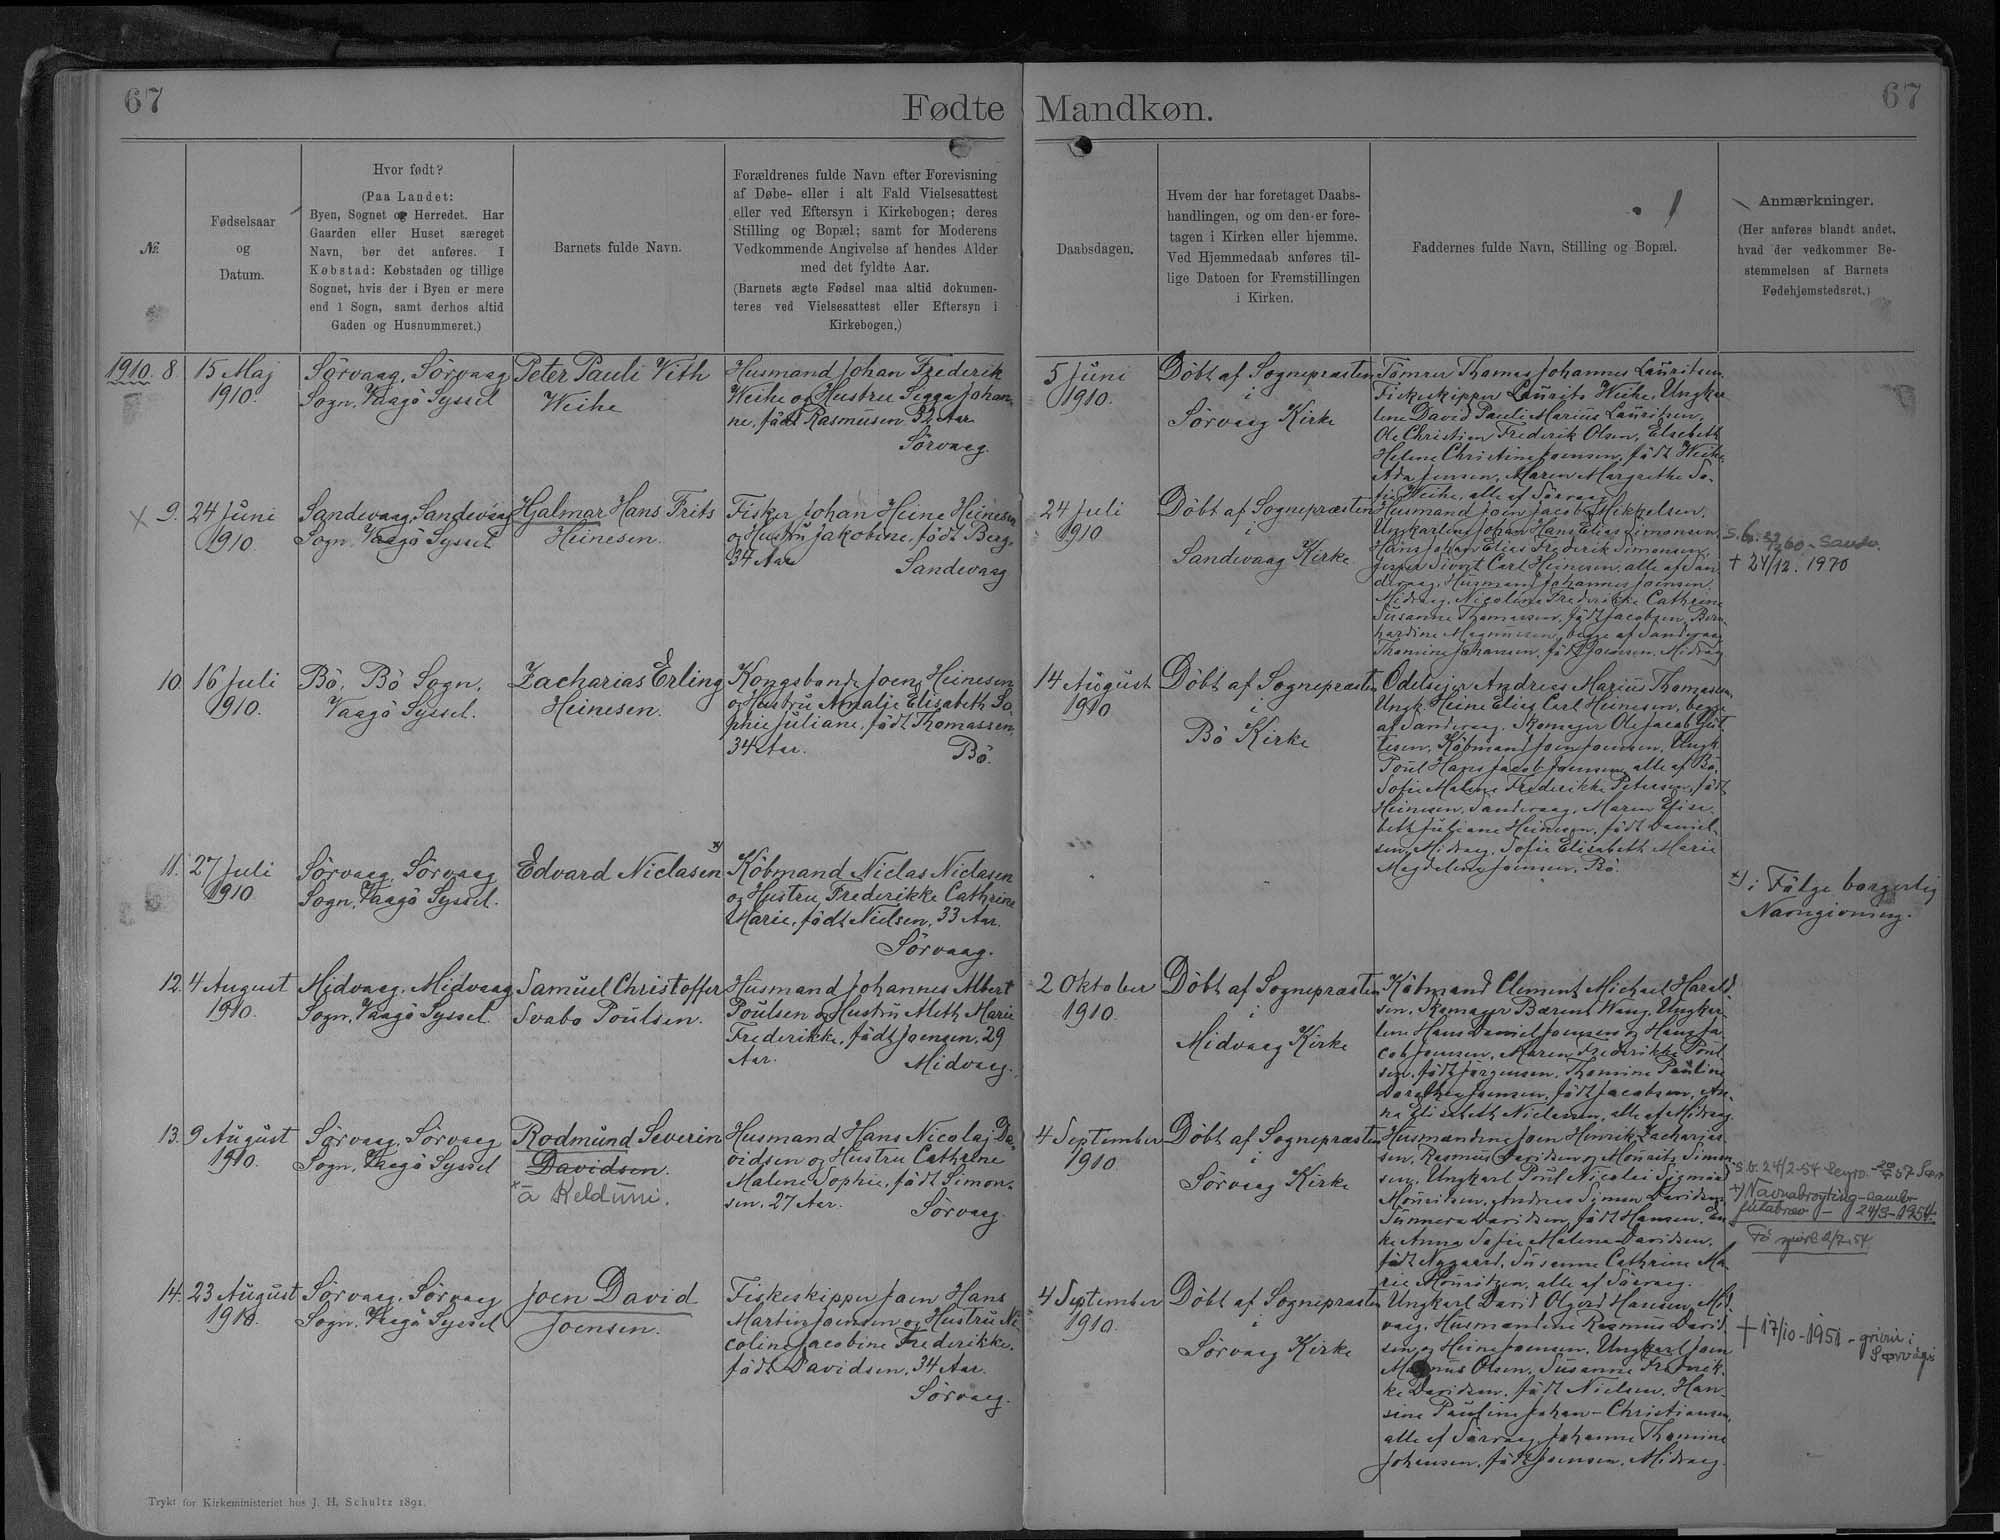 67
Fødte Mandkøn.
67
№
Fødselsaar
og
Datum.
Hvor født?
(Paa Landet:
Byen, Sognet og Herredet. Har
Gaarden eller Huset særeget
Navn, bør det anføres. I
Købstad: Købstaden og tillige
Sognet, hvis der i Byen er mere
end 1 Sogn, samt derhos altid
Gaden og Husnummeret.)
Barnets fulde Navn.
Forældrenes fulde Navn efter Forevisning
af Døbe- eller i alt Fald Vielsesattest
eller ved Eftersyn i Kirkebogen; deres
Stilling og Bopæl; samt for Moderens
Vedkommende Angivelse af hendes Alder
med det fyldte Aar.
(Barnets ægte Fødsel maa altid dokumen-
teres ved Vielsesattest eller Eftersyn i
Kirkebogen.)
Daabsdagen.
Hvem der har foretaget Daabs-
handlingen, og om den er fore-
tagen i Kirken eller hjemme.
Ved Hjemmedaab anføres til-
lige Datoen for Fremstillingen
i Kirken.
Faddernes fulde Navn, Stilling og Bopæl.
Anmærkninger.
(Her anføres blandt andet,
hvad der vedkommer Be-
stemmelsen af Barnets
Fødehjemstedsret.)
1910. 8.
15 Maj
1910.
Sörvaag, Sörvaag
Sogn, Vaagö Syssel
Peter Pauli Vith
Weihe
Husmand Johan Frederik
Weihe og Hustru Sigga Johan-
ne, födt Rasmusen 32 Aar
Sörvaag.
5 Juni
1910.
Döbt af Sognepræsten
i
Sörvaag Kirke
Tömrer Thomas Johannes Lauritsen
Fiskeskipper Laurits Weihe, Ungkar
lene David Pauli Marius Lauritsen,
Ole Christian Frederik Olsen, Elsebeth
Helene Christine Joensen, födt Weihe,
Ada Jensen, Maren Margrethe So-
fie Weihe, alle af Sörvaag
9.
24 Juni
1910
Sandevaag, Sandevaag
Sogn, Vaagö Syssel
Hjalmar Hans Frits
Heinesen.
Fisker Johan Heine Heinesen
og Hustru Jakobine, födt Berg,
34 Aar
Sandevaag
24 Juli
1910
Döbt af Sognepræsten
i
Sandevaag Kirke
Husmand Joen Jacob Mikkelsen,
Ungkarlene Johan Hans Elias Simonsen,
Hans Johan Elias Frederik Simonsen,
Jesper Sivert Carl Heinesen, alle af San
devaag, Husmand Johannes Joensen,
Midvaag, Nicolina Frederikke Cathrine
Susanne Thomassen, födt Jacobsen, Bern
hardine Magnussen, begge af Sandevaag
Thomine Johansen, födt Joensen, Midvaag
† 24/12. 1970
10.
16 Juli
1910.
Bö, Bö Sogn,
Vaagö Syssel.
Zacharias Erling
Heinesen.
Kongsbonde Joen Heinesen
og Hustru Amalie Elisabeth So
phie Juliane, födt Thomassen,
34 Aar.
Bö.
14 August
1910
Döbt af Sognepræsten
i
Bö Kirke
Odelsejer Andreas Marius Thomassen,
Ungk. Heine Elias Carl Heinesen, begge
af Sandevaag. Skomager Ole Jacob Gut
tesen, Köbmand Joen Joensen, Ungk.
Poul Hans Jacob Joensen, alle af Bö,
Sofie Malene Frederikke Petersen, födt
Heinesen, Sandevaag, Maren Elisa
beth Juliane Heinesen, födt Daniel-
sen, Midvaag, Sofie Elisabeth Marie
Magdelene Joensen, Bö.
11.
27 Juli
1910
Sörvaag, Sörvaag
Sogn, Vaagö Syssel.
Edvard Niclasen *)
Köbmand Niclas Niclasen
og Hustru Frederikke Cathrine
Marie, födt Nielsen, 33 Aar.
Sörvaag.
*) i Fölge borgerlig
Navngivning.
12.
4 August
1910.
Midvaag, Midvaag
Sogn, Vaagö Syssel.
Samuel Christoffer
Svabo Poulsen.
Husmand Johannes Albert
Poulsen og Hustru Meth Marie
Frederikke, födt Joensen, 29
Aar.
Midvaag.
2 Oktober
1910.
Döbt af Sognepræsten
i
Midvaag Kirke
Köbmand Clement Michael Harald
sen, Skomager Bærent Wang, Ungkar-
lene Hans Daniel Joensen og Hans Ja
cob Joensen, Maren Frederikke Poul
sen, födt Jörgensen, Thomine Pauline
Dorothea Joensen, födt Jacobsen, An-
na Elisabeth Niclasen, alle af Midvaag.
13.
9 August
1910.
Sörvaag, Sörvaag
Sogn, Vaagö Syssel
Rodmund Severin
Davidsen.
*á Keldúni.
Husmand Hans Nicolaj Da-
vidsen og Hustru Cathrine
Malene Sophie, födt Simon-
sen, 27 Aar.
Sörvaag.
4 September
1910.
Döbt af Sognepræsten
i
Sörvaag Kirke
Husmændene Joen Henrik Zacharias
sen, Rasmus Davidsen og Mourits Simon
sen, Ungkarl Poul Nicolai Sigmund
Mouritsen, Andreas Simon Davidsen,
Sunneva Davidsen, födt Hansen, En
ke Anna Sofie Malena Davidsen,
födt Nygaard, Susanne Cathrine Ma
rie Mouritzen, alle af Sörvaag.
*) Navnabroyting
24/3-1954.
14.
23 August
1910.
Sörvaag, Sörvaag
Sogn, Vaagö Syssel
Joen David
Joensen.
Fiskeskipper Joen Hans
Martin Joensen og Hustru Ni
coline Jacobine Frederikke,
födt Davidsen, 34 Aar.
Sörvaag.
4 September
1910.
Döbt af Sognepræsten
i
Sörvaag Kirke
Ungkarl David Olgerd Hansen, Mid
vaag, Husmændene Rasmus David
sen og Heine Joensen, Ungkarl Joen
Magnus Olsen, Susanne Frederik
ke Davidsen, födt Nielsen, Han-
sine Pauline Johan-Christiansen,
alle af Sörvaag, Johanne Thomine
Johansen, födt Joensen, Midvaag.
† 17/10-1951 - grivin i
Sørvági
Trykt for Kirkeministeriet hos J. H. Schultz 1891.